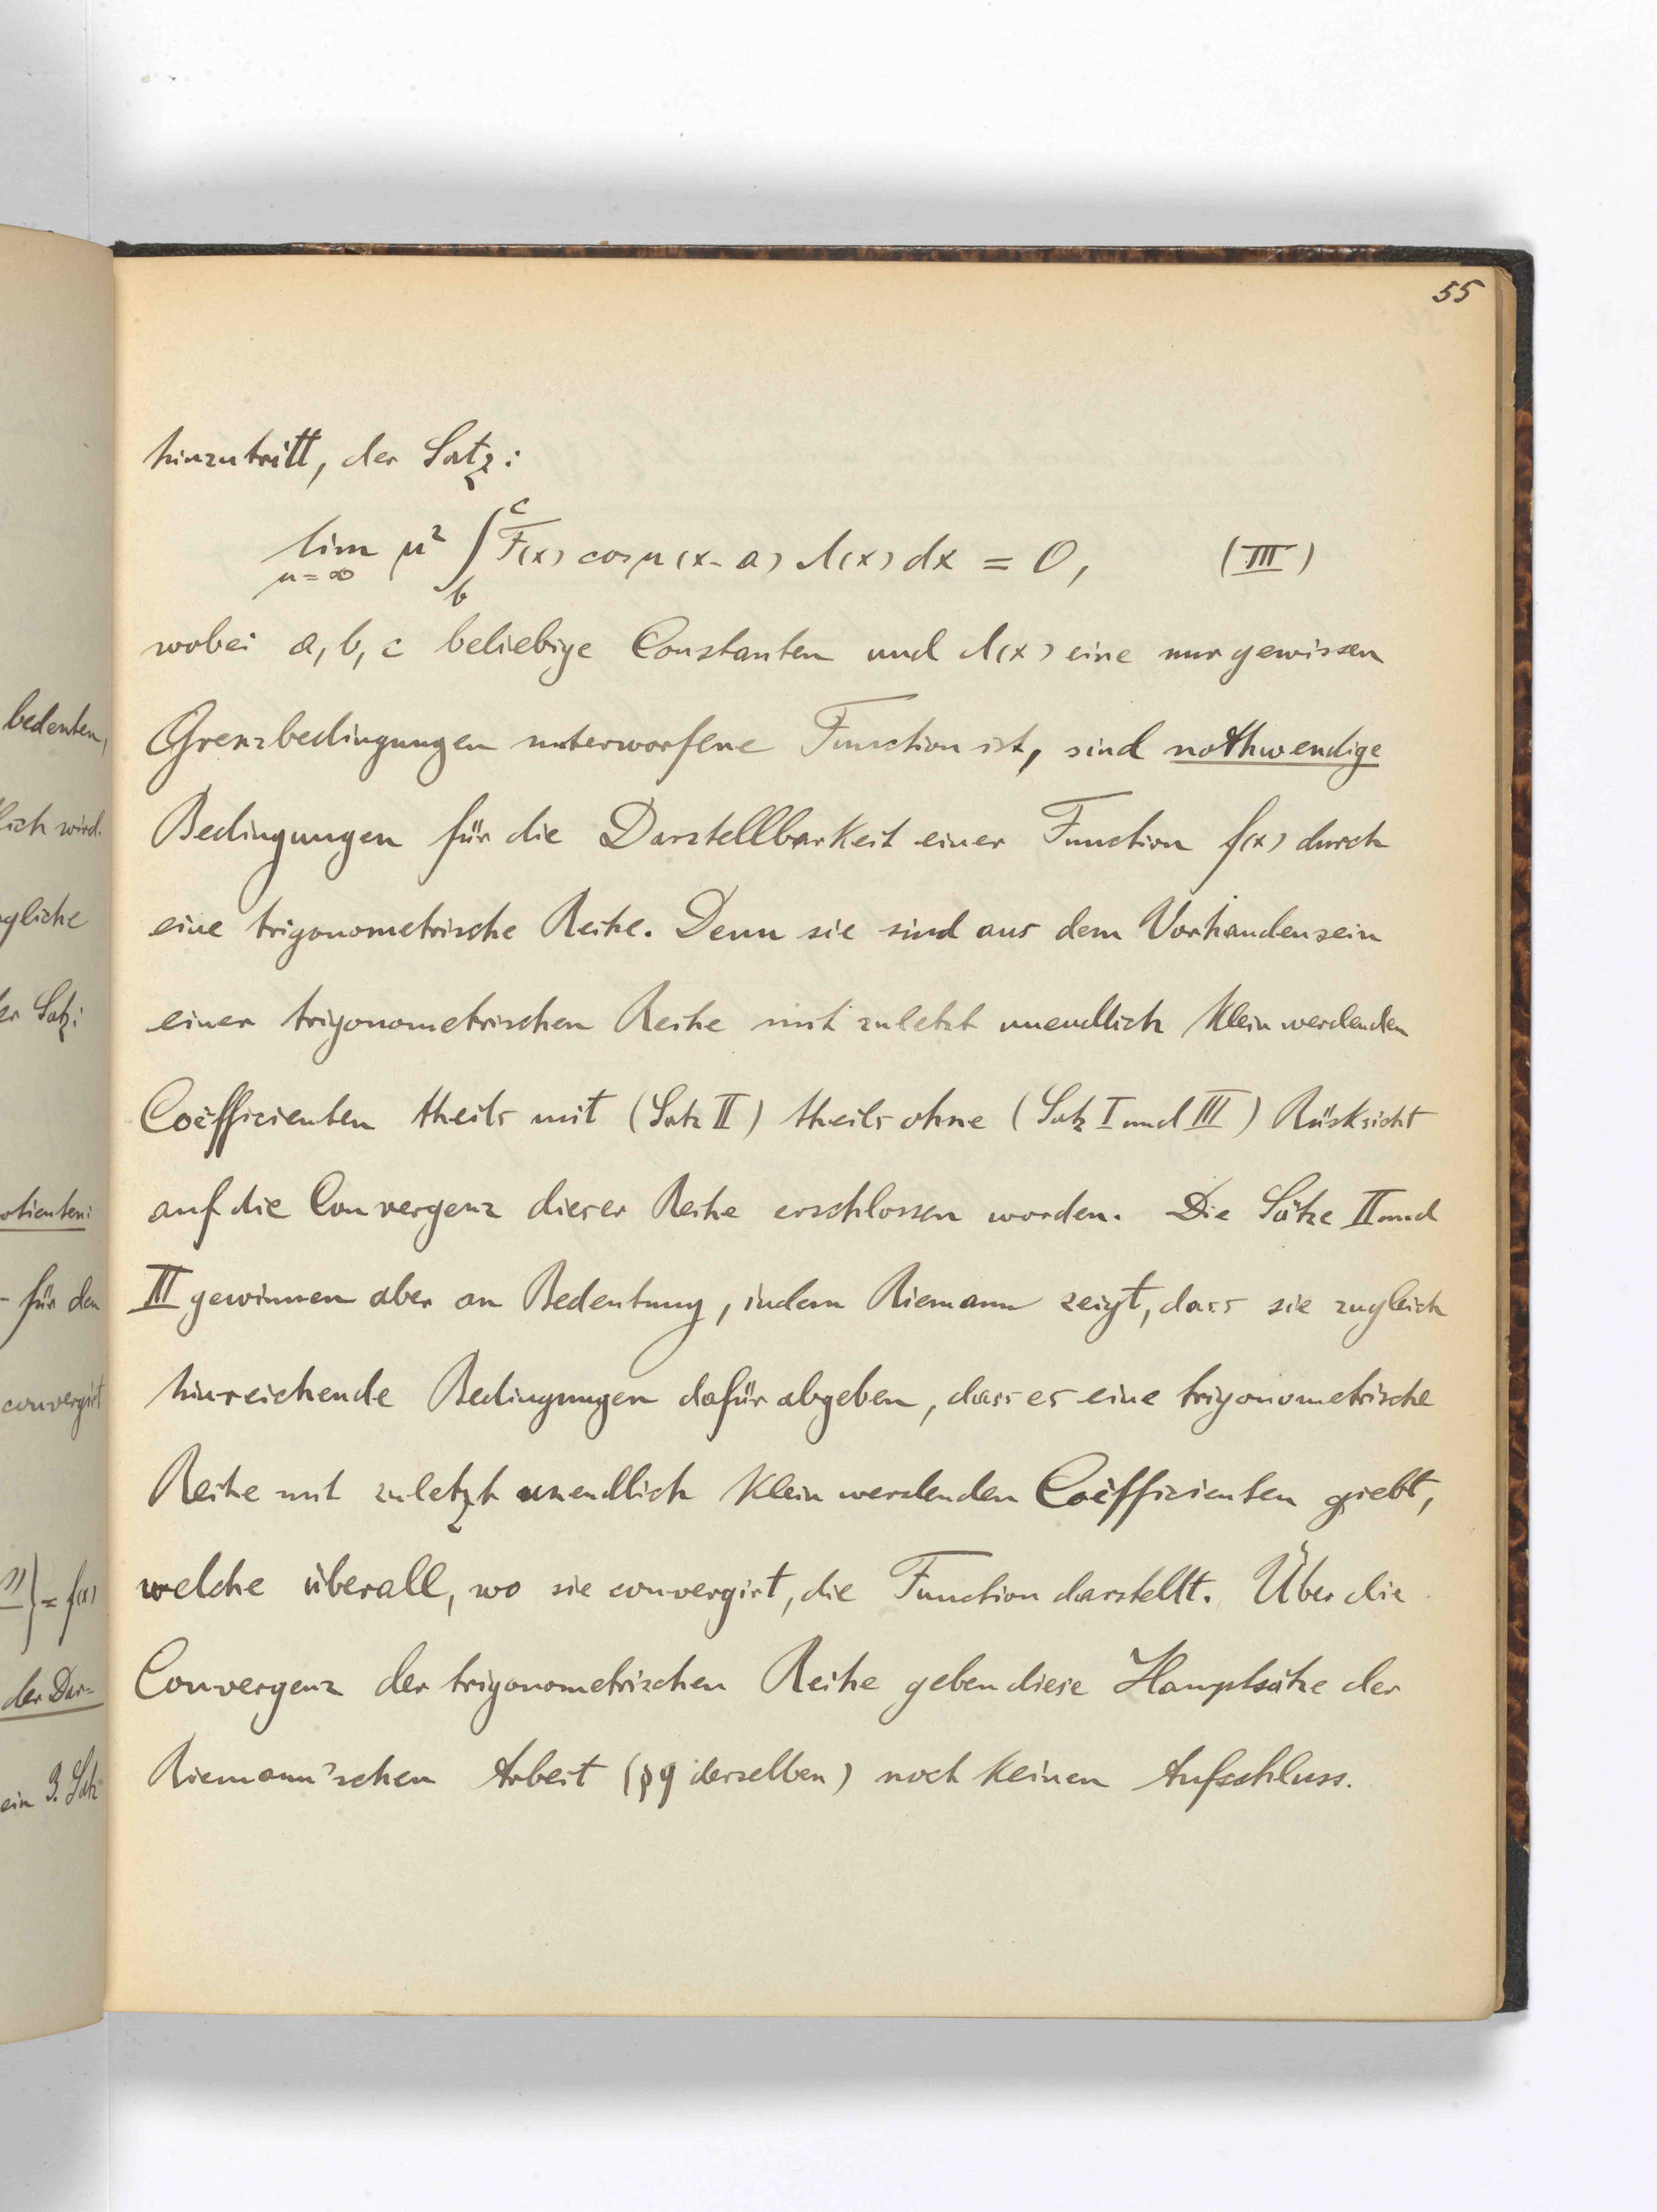 55
hinzutritt, der Satz:
lim μ² ∫ F(x) cos μ(x-a) λ(x) dx = 0, (III)
μ=∞ b c
wobei a, b, c beliebige Constanten und λ(x) eine nur gewissen
Grenzbedingungen unterworfene Function ist, sind nothwendige
Bedingungen für die Darstellbarkeit einer Function f(x) durch
eine trigonometrische Reihe. Denn sie sind aus dem Vorhandensein
einer trigonometrischen Reihe mit zuletzt unendlich klein werdenden
Coëfficienten theils mit (Satz II) theils ohne (Satz I und III) Rücksicht
auf die Convergenz dieser Reihe erschlossen worden. Die Sätze II und
III gewinnen aber an Bedeutung, indem Riemann zeigt, dass sie zugleich
hinreichende Bedingungen dafür abgeben, dass es eine trigonometrische
Reihe mit zuletzt unendlich klein werdenden Coëfficienten giebt,
welche überall, wo sie convergirt, die Function darstellt. Über die
Convergenz der trigonometrischen Reihe geben diese Hauptsätze der
Riemann'schen Arbeit (§9 derselben) noch keinen Aufschluss.
bedeuten,
lich wird.
gliche
er Satz:
otienten:
- für den
convergirt
)} = f(x)
der Dar=
ein 3. Satz